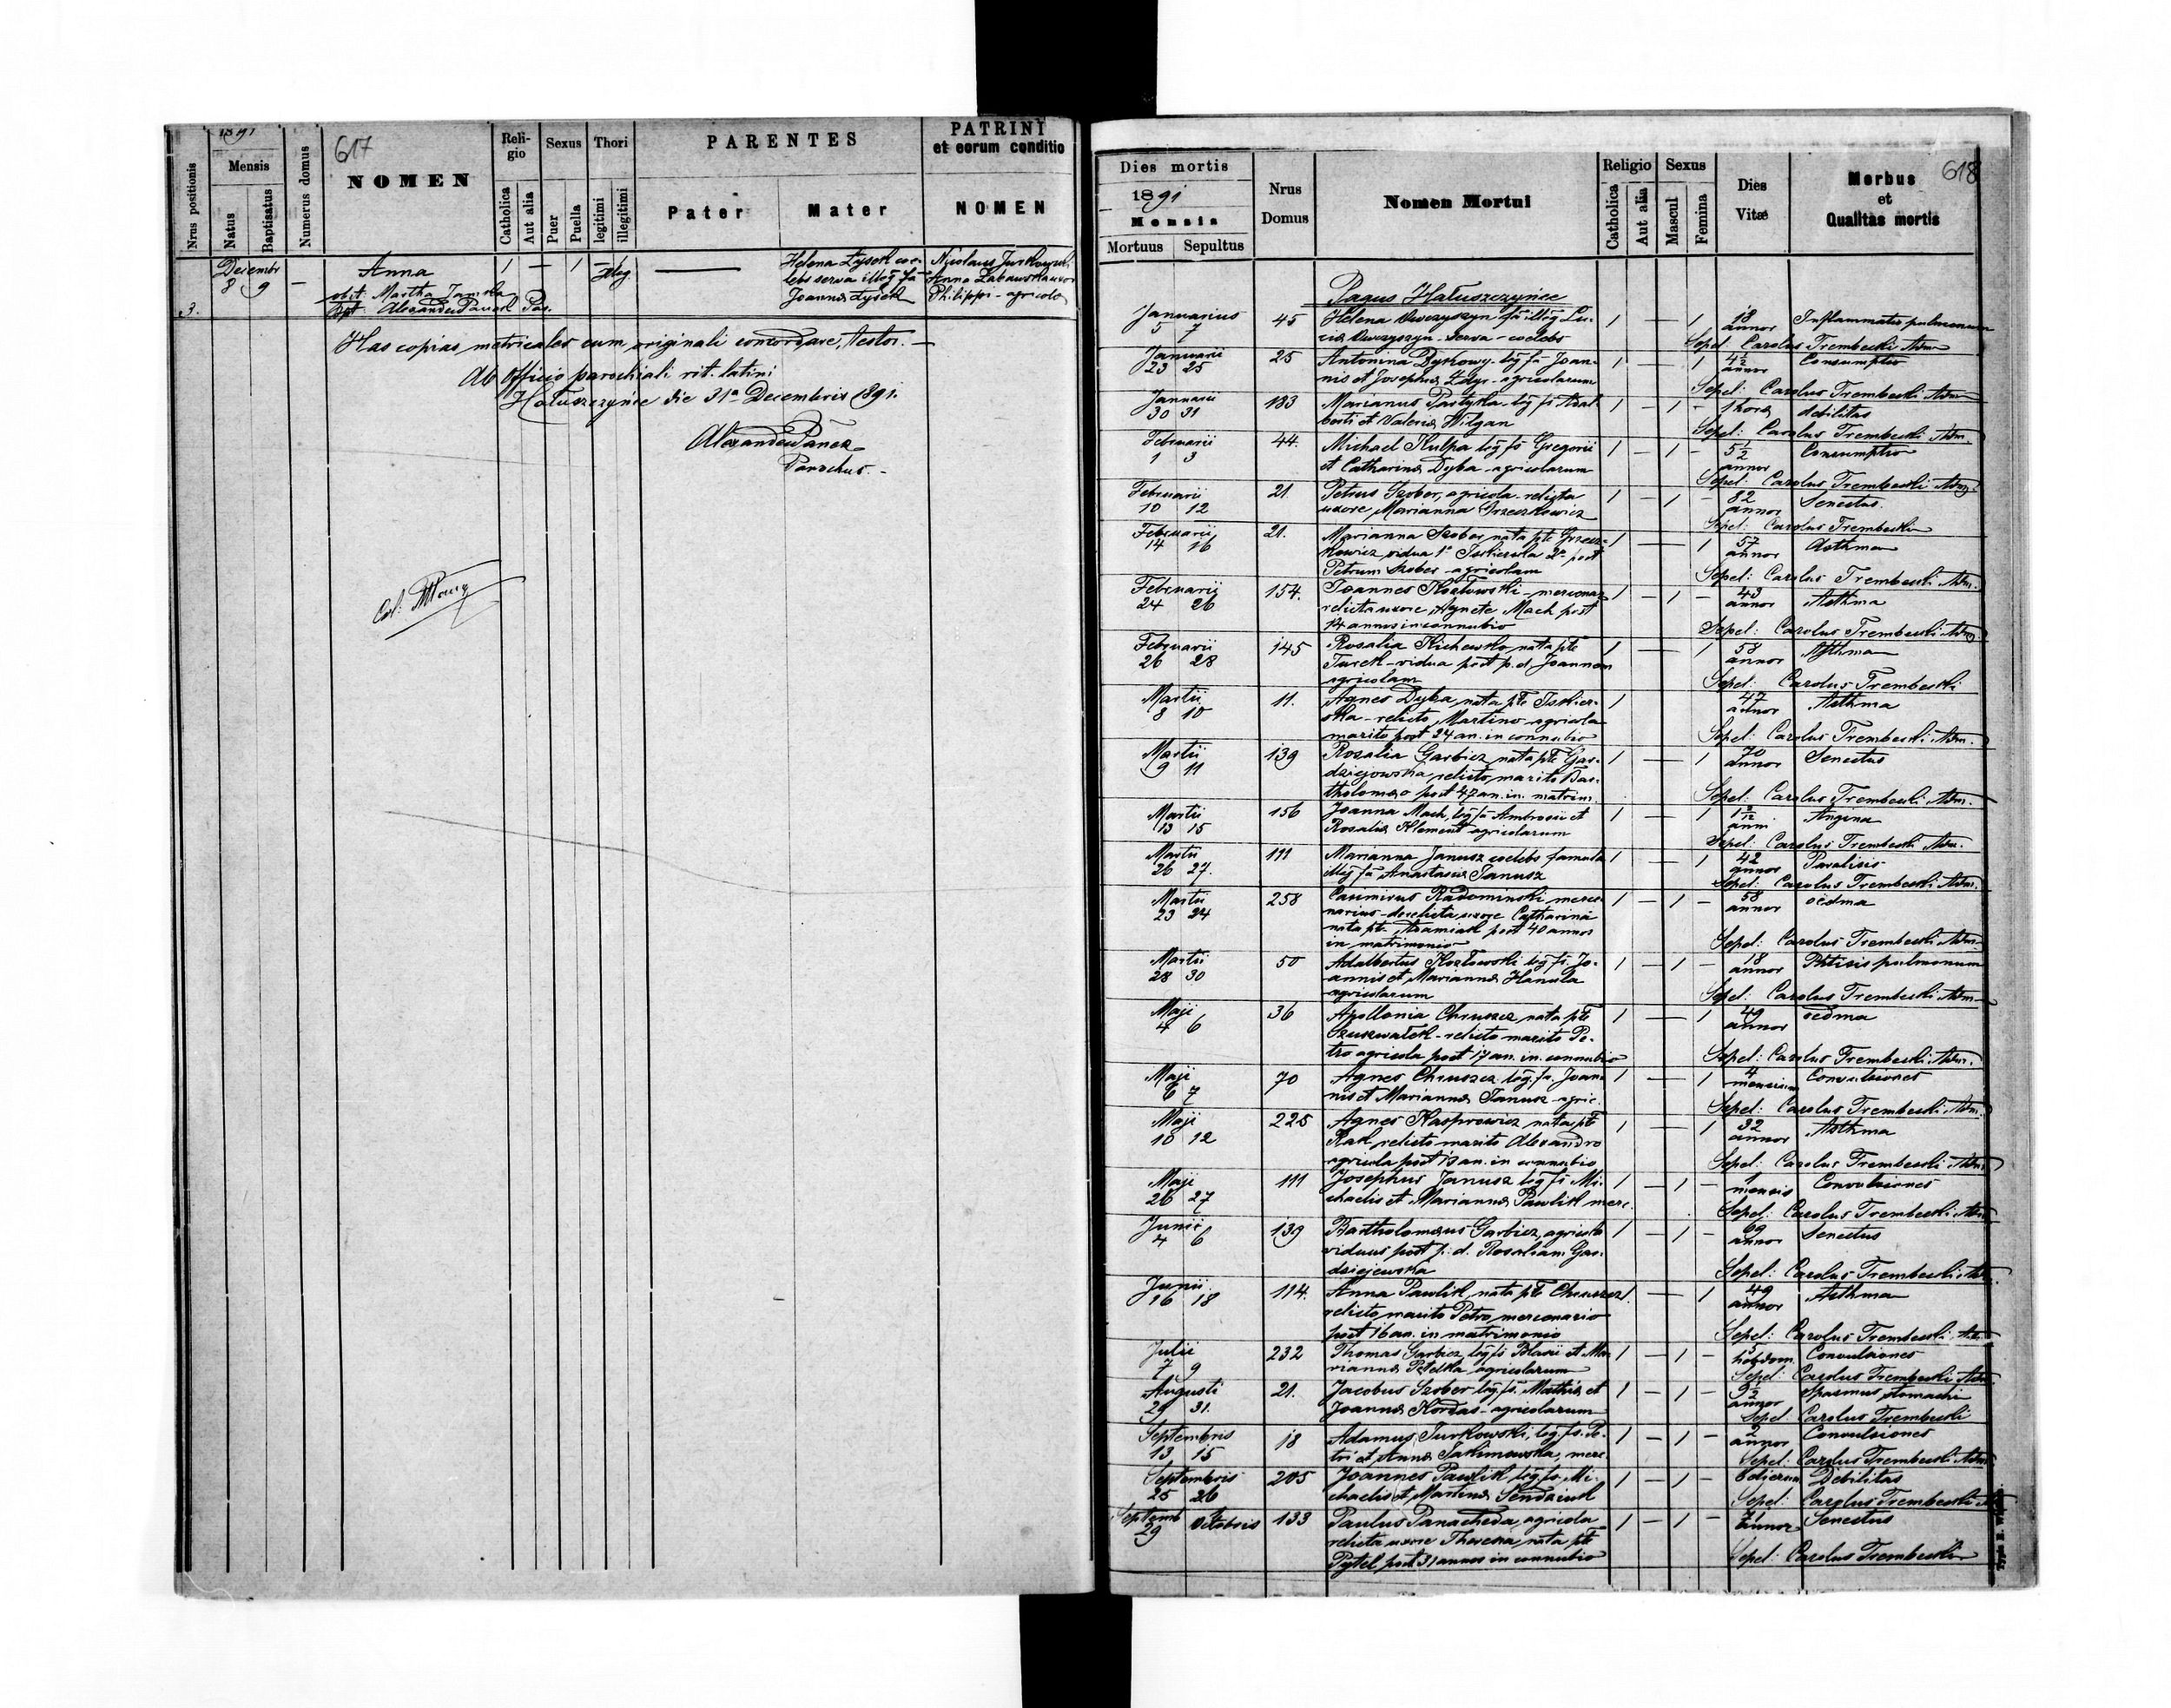 617
1891
Nrus positionis
Mensis
Natus
Baptisatus
Numerus domus
NOMEN
Reli-
gio
Catholica
Aut alia
Sexus
Puer
Puella
Thori
legitimi
illegitimi
PARENTES
Pater
Mater
PATRINI
et eorum conditio
NOMEN
3.
Decembr
8 9
—
Anna
obst. Martha
bapt. Alexander Par.
1 — 1 — illeg
Helena Łysek coe-
lebs serva illeg fa
Joanna Łysek
Nicolaus
Anna uxor
Philippi - agricola
Has copias metricales cum originali concordare, testor. —
Ab Officio parochiali rit. latini
Hałuszczyńce die 31a Decembris 1891.
Alexander
Parochus. -
618
Dies mortis
1891
Mensis
Mortuus
Sepultus
Nrus
Domus
Nomen Mortui
Religio
Catholica
Aut alia
Sexus
Mascul
Femina
Dies
Vitæ
Morbus
et
Qualitas mortis
Pagus Hałuszczyńce
Januarius
5 7
45
Helena Owczyszyn fa illeg Lu-
cia Owczyszyn - serva - coelebs
1 — 1
18
annor
Inflammatio pulmonum
Sepel: Carolus Trembecki Adm
Januarii
23 25
25
Antonina leg fa Joan-
nis et Josepha - agricolarum
1 — 1
4 1/2
annor
Consumptio
Sepel: Carolus Trembecki Adm
Januarii
30 31
183
Marianus Partyka, leg fs Adal-
berti et Valeria Wilgan
1 — 1 -
1 hora
debilitas
Sepel: Carolus Trembecki Adm.
Februarii
1 3
44.
Michael Kulpa leg fs Gregorii
et Catharina Dyba - agricolarum
1 — 1 -
5 1/2
annor
Consumptio
Sepel: Carolus Trembecki Adm.
Februarii
10 12
21.
Petrus Szober, agricola - relicta
uxore Marianna Grzeszkowicz
1 — 1 -
82
annor
Senectus.
Sepel: Carolus Trembecki
Februarii
14 16
21.
Marianna Szober nata pte Grzesz-
kowicz vidua 1o 2o post
Petrum Szober - agricolam
1 — 1
57
annor
Asthma
Sepel: Carolus Trembecki Adm.
Februarii
24 26
154.
Joannes Kozłowski - mercenar
relicta uxore Agnete Mach post
14 annos in connubio
1 — 1 -
43
annor
Asthma
Sepel: Carolus Trembecki Adm.
Februarii
26 28
145
Rosalia nata pte
Turek - vidua post p. d. Joannem
agricolam
1 — 1
58
annor
Asthma
Sepel: Carolus Trembecki
Martii
8 10
11.
Agnes Dyba nata pte
relicto Martino agricola
marito post 24 an. in connubio
1
47
annor
Asthma
Sepel: Carolus Trembecki Adm.
Martii
9 11
139
Rosalia Garbicz nata pte Gar-
dziejowska relicto marito Bar-
tholomæo post 47 an. in matrim.
1 — 1
70
annor
Senectus
Sepel: Carolus Trembecki Adm.
Martii
13 15
156
Joanna Mach, leg fa Ambrosii et
Rosalia Klement agricolarum
1 — 1
anni
Angina
Sepel: Carolus Trembecki Adm.
Martii
26 27.
111
Marianna Janusz coelebs famula
illeg fa Anastasia Janusz
1 — 1
42
annor
Paralisis
Sepel: Carolus Trembecki Adm.
Martii
23 24
258
Casimirus Radominski merce-
narius - derelicta uxore Catharina
nata pte post 40 annos
in matrimonio
1 — 1 -
58
annor
oedma
Sepel: Carolus Trembecki Adm.
Martii
28 30
50
Adalbertus Kozłowski leg fs. Jo-
annis et Marianna Hanula
agricolarum
1 — 1 -
18
annor
Phtisis pulmonum
Sepel: Carolus Trembecki Adm.
Maji
4 6
36
Apollonia Chruszcz nata pte
Szuszwałek - relicto marito Pe-
tro agricola post 17 an. in connubio
1 — 1
49
annor
oedma
Sepel: Carolus Trembecki Adm.
Maji
6 7
70
Agnes Chruszcz leg. fa. Joan-
nis et Marianna Janusz - agric.
1 — 1
4
mensium
Convulsiones
Sepel: Carolus Trembecki Adm.
Maji
10 12
225
Agnes Kasprowicz nata pte
Rak relicto marito Alexandro
agricola post 13 an. in connubio
1 — 1
32
annor
Asthma
Sepel: Carolus Trembecki Adm
Maji
26 27
111
Josephus Janusz leg fs Mi-
chaelis et Marianna Pawlik merc.
1 — 1 -
1
mensis
Convulsiones
Sepel: Carolus Trembecki Adm
Junii
4 6
139
Bartholomæus Garbicz, agricola
viduus post p. d. Rosaliam Gar-
dziejewska
1 — 1 -
69
annor
Senectus
Sepel: Carolus Trembecki Adm.
Junii
16 18
114.
Anna Pawlik, nata pte Chruszcz
relicto marito Petro mercenario
post 16 an. in matrimonio
1. — 1
49
annor
Asthma
Sepel: Carolus Trembecki Adm
Julii
7 9
232
Thomas Garbicz leg fs Blasii et Ma-
rianna agricolarum
1 — 1 -
hebdom
Convulsiones
Sepel: Carolus Trembecki Adm
Augusti
29 31.
21.
Jacobus Szober leg. fs. Mathia et
Joanna Kordas - agricolarum
1 — 1 -
9 1/2
annor
Spasmus stomachi
Sepel: Carolus Trembecki
Septembris
13 15
18
Adamus Turkowski, leg. fs. Pe-
tri et Anna merc.
1 — 1 -
2
annor
Convulsiones
Sepel: Carolus Trembecki Adm
Septembris
25 26
205
Joannes Pawlik, leg. fs. Mi-
chaelis et Martina
1 — 1 -
8 dierum
Debilitas
Sepel: Carolus Trembecki
Septemb
29
Octobris
133
Paulus Panacheda, agricola
relicta uxore Theresia, nata pte
Pytel post 31 annos in connubio
1 — 1 -
annor
Senectus
Sepel: Carolus Trembecki